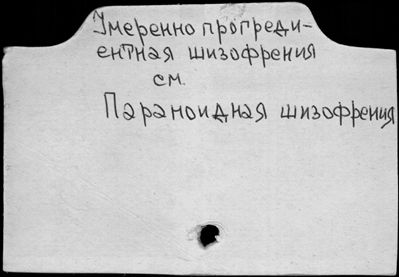 Умеренно прогреди-
ентная шизофрения
см.
Параноидная шизофрения